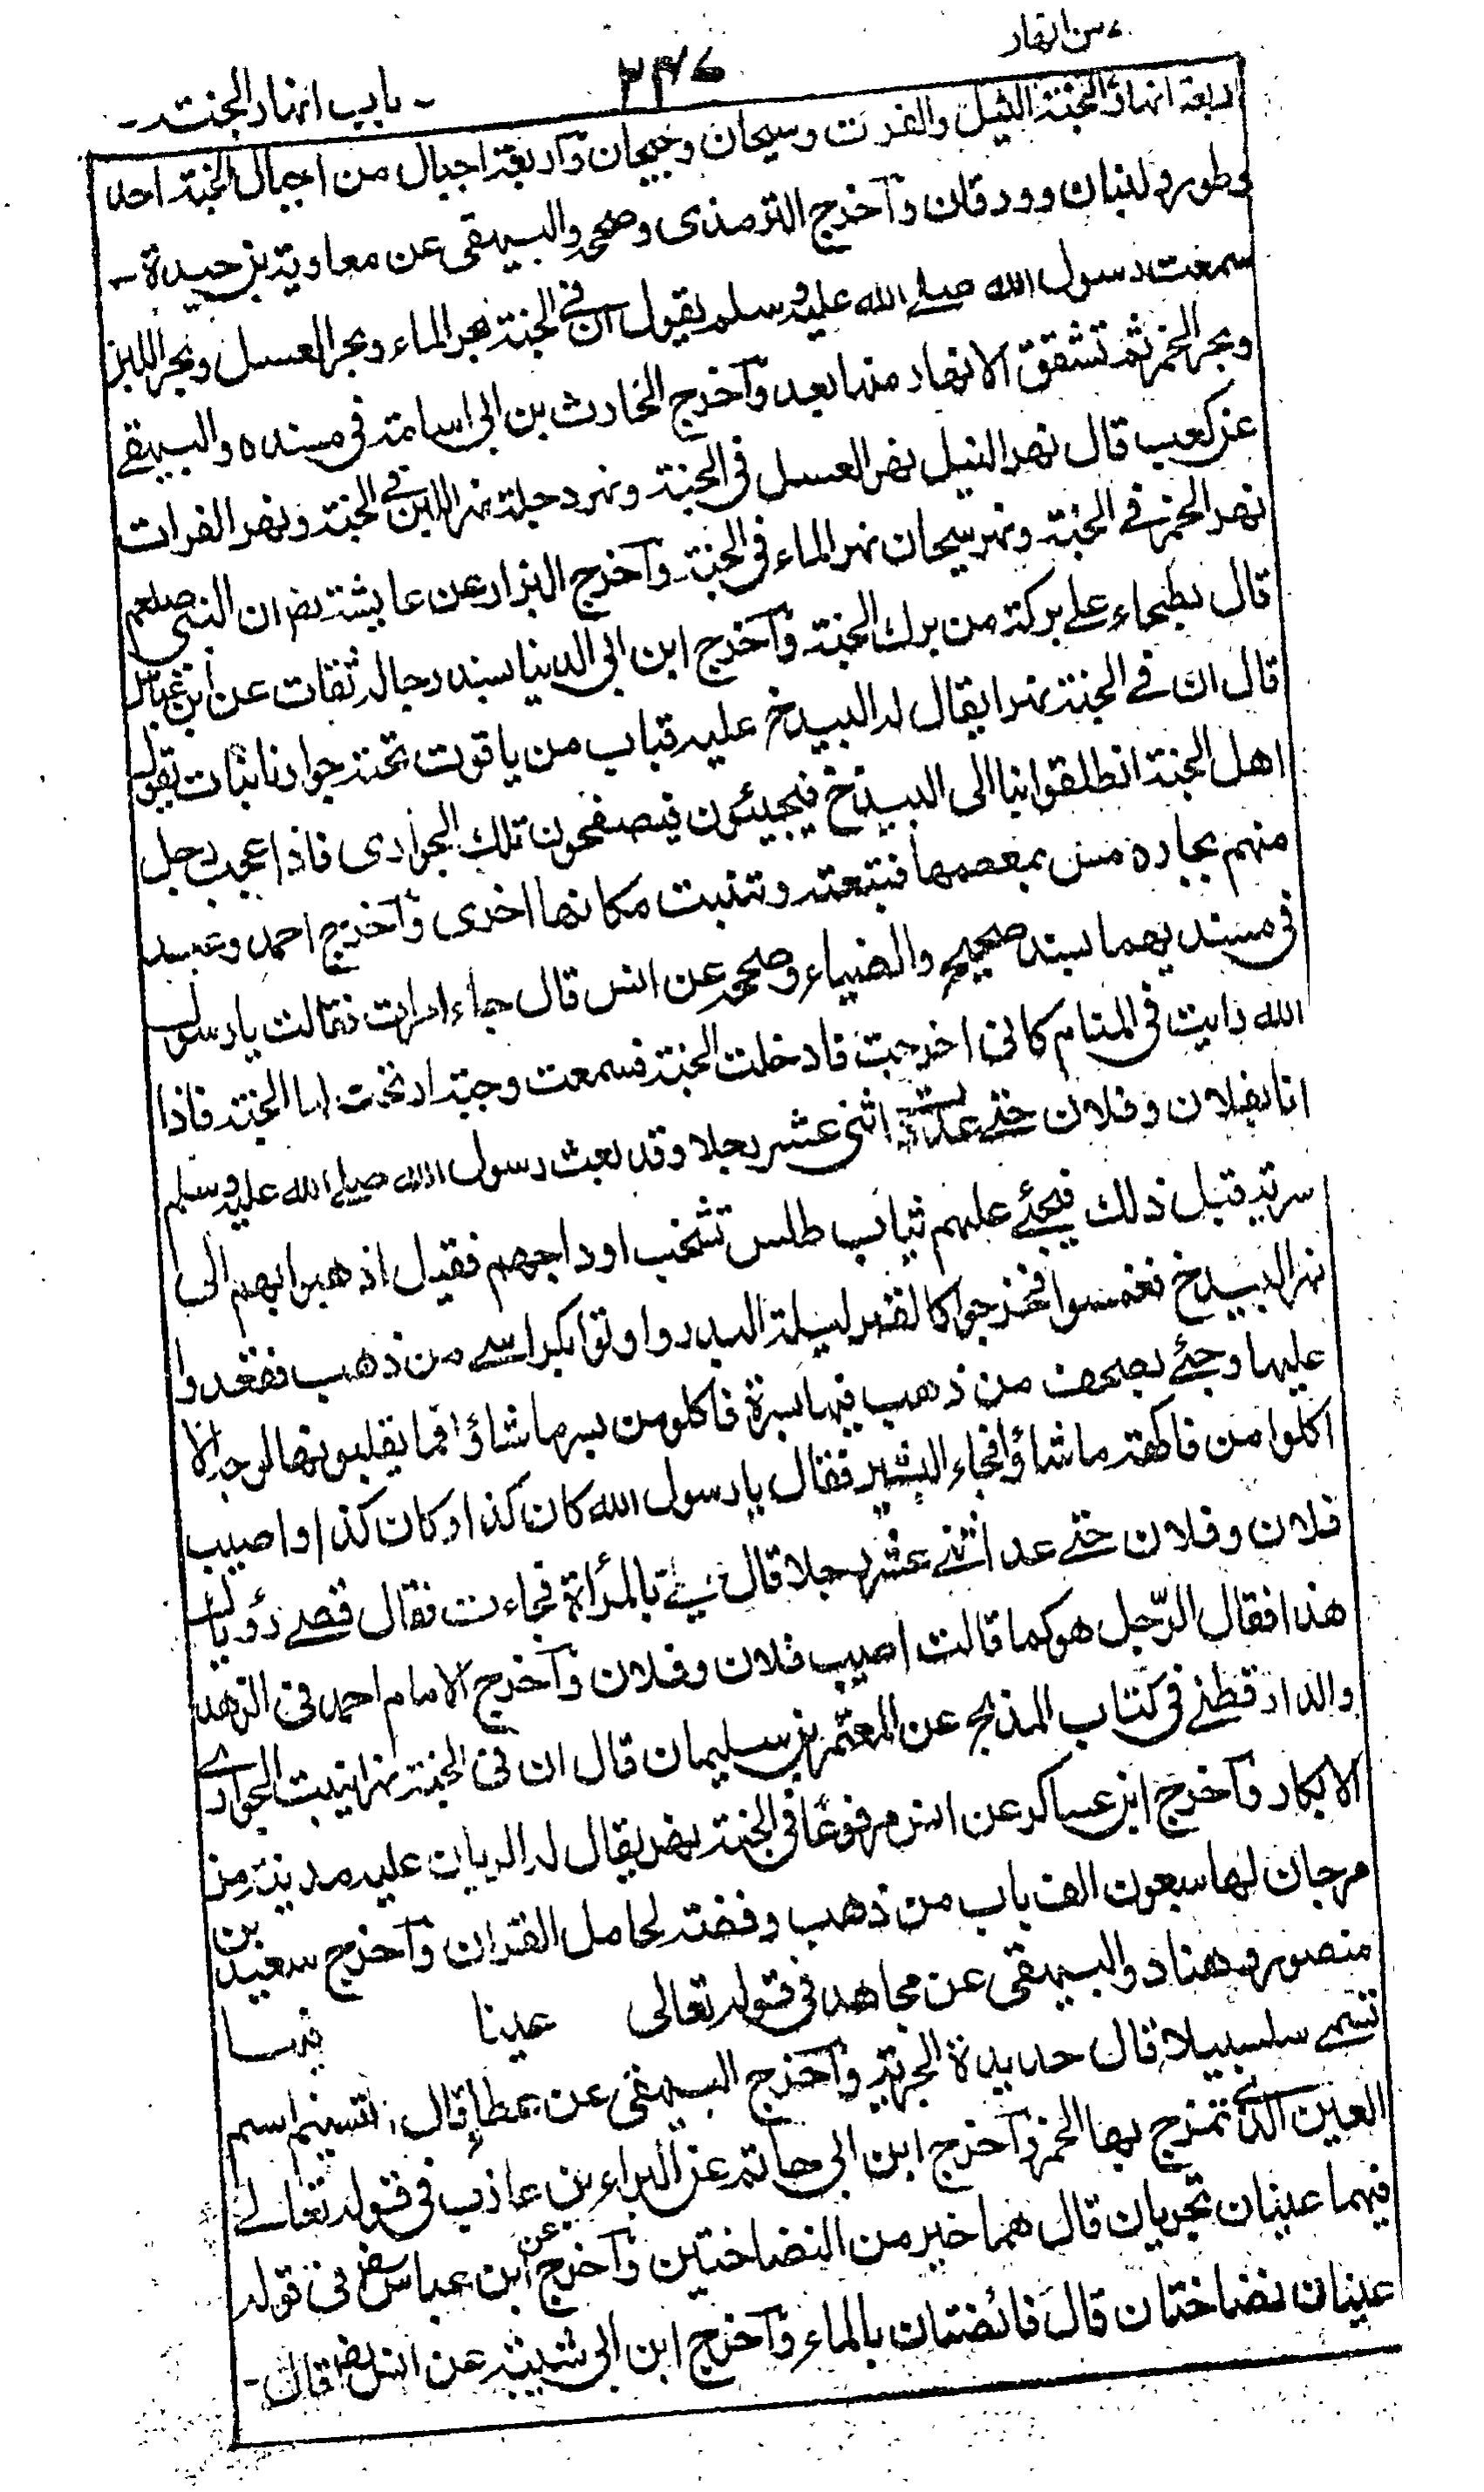 من انهار
٢٣٧
باب انهار الجنة
اربعة انهار الجنة النيل والفرت وسيحان وجيحان وآربعة اجبال من اجبال الجنة احد
وطور ولبنان وورقان وآخرج الترمذى وصححه والبيهقى عن معاوية بن حيدة
سمعت رسول الله صلے الله عليه وسلم يقول ان فے الجنة بحر الماء وبحر العسل وبحر اللبن
وبحر الخمر ثم تشقق الانهار منها بعد وآخرج الحارث بن ابى اسامة فى مسنده والبيهقے
عن كعب قال نهر النيل نهر العسل فى الجنة ونهر دجلة نهر اللبن فے الجنة ونهر الفرات
نهر الخمر فے الجنة ونهر سيحان نهر الماء فى الجنة وآخرج البزار عن عايشة رض ان النبى صلعم
قال بطحاء علے بركة من برك الجنة وآخرج ابن ابى الدنيا بسند رجاله ثقات عن ابن عباس
قال ان فے الجنة نهرا يقال له البيدخ عليه قباب من ياقوت تحته جوار نابتات يقول
اهل الجنة انطلقوا بنا الى البيدخ فيجيئون فيتصفحون تلك الجوارى فاذا اعجب رجل
منهم بجارة مس بمعصمها فتبعته وتنبت مكانها اخرى وآخرج احمد وعبد
فى مسنديهما بسند صحيح والضياء وصححه عن انس قال جاء امرات فقالت يا رسول
الله رايت فى المنام كانى اخرجت فادخلت الجنة فسمعت وجبة ارتجت لها الجنة فاذا
انا بفلان وفلان حتے عدت اثنى عشر رجلا وقد بعث رسول الله صلے الله عليه وسلم
سرية قبل ذلك فجئے عليهم ثياب طلس تشخب اوداجهم فقيل اذهبوا بهم الى
نهر البيدخ فغمسوا فخرجوا كالقمر ليلة البدر واوتوا بكراسے من ذهب فقعدوا
عليها وجئے بصحف من ذهب فيها بسرة فاكلو من بسر ما شاؤا فما يقلبونها لوجه الا
اكلوا من فاكهة ما شاؤا فجاء البشير فقال يا رسول الله كان كذا وكان كذا واصيب
فلان وفلان حتے عد اثنے عشر رجلا قال علے بالمرأة فجاءت فقال قصے رؤياك
هذا فقال الرّجل هو كما قالت اصيب فلان وفلان وآخرج الامام احمد فى الزهد
والدارقطنے فى كتاب المذبح عن المعتمر بن سليمان قال ان فى الجنة نهرا ينبت الجوارے
الابكار وآخرج ابن عساكر عن انس مرفوعًا فى الجنة نهر يقال له الريان عليه مدينة من
مرجان لها سبعون الف باب من ذهب وفضة لحامل القران وآخرج سعيد بن
منصور وهناد والبيهقى عن مجاهد فى قوله تعالى عينا فيها
تسمے سلسبيلا قال حديدة الجرية وآخرج البيهقى عن عطا قال التسنيم اسم
العين التے تمزج بها الخمر وآخرج ابن ابى حاتم عن البراء بن عازب فى قوله تعالے
فيهما عينان تجريان قال هما خير من النضاختين وآخرج عن ابن عباس رض فى قوله
عينان نضاختان قال فائضتان بالماء وآخرج ابن ابى شيبة عن انس رض قال